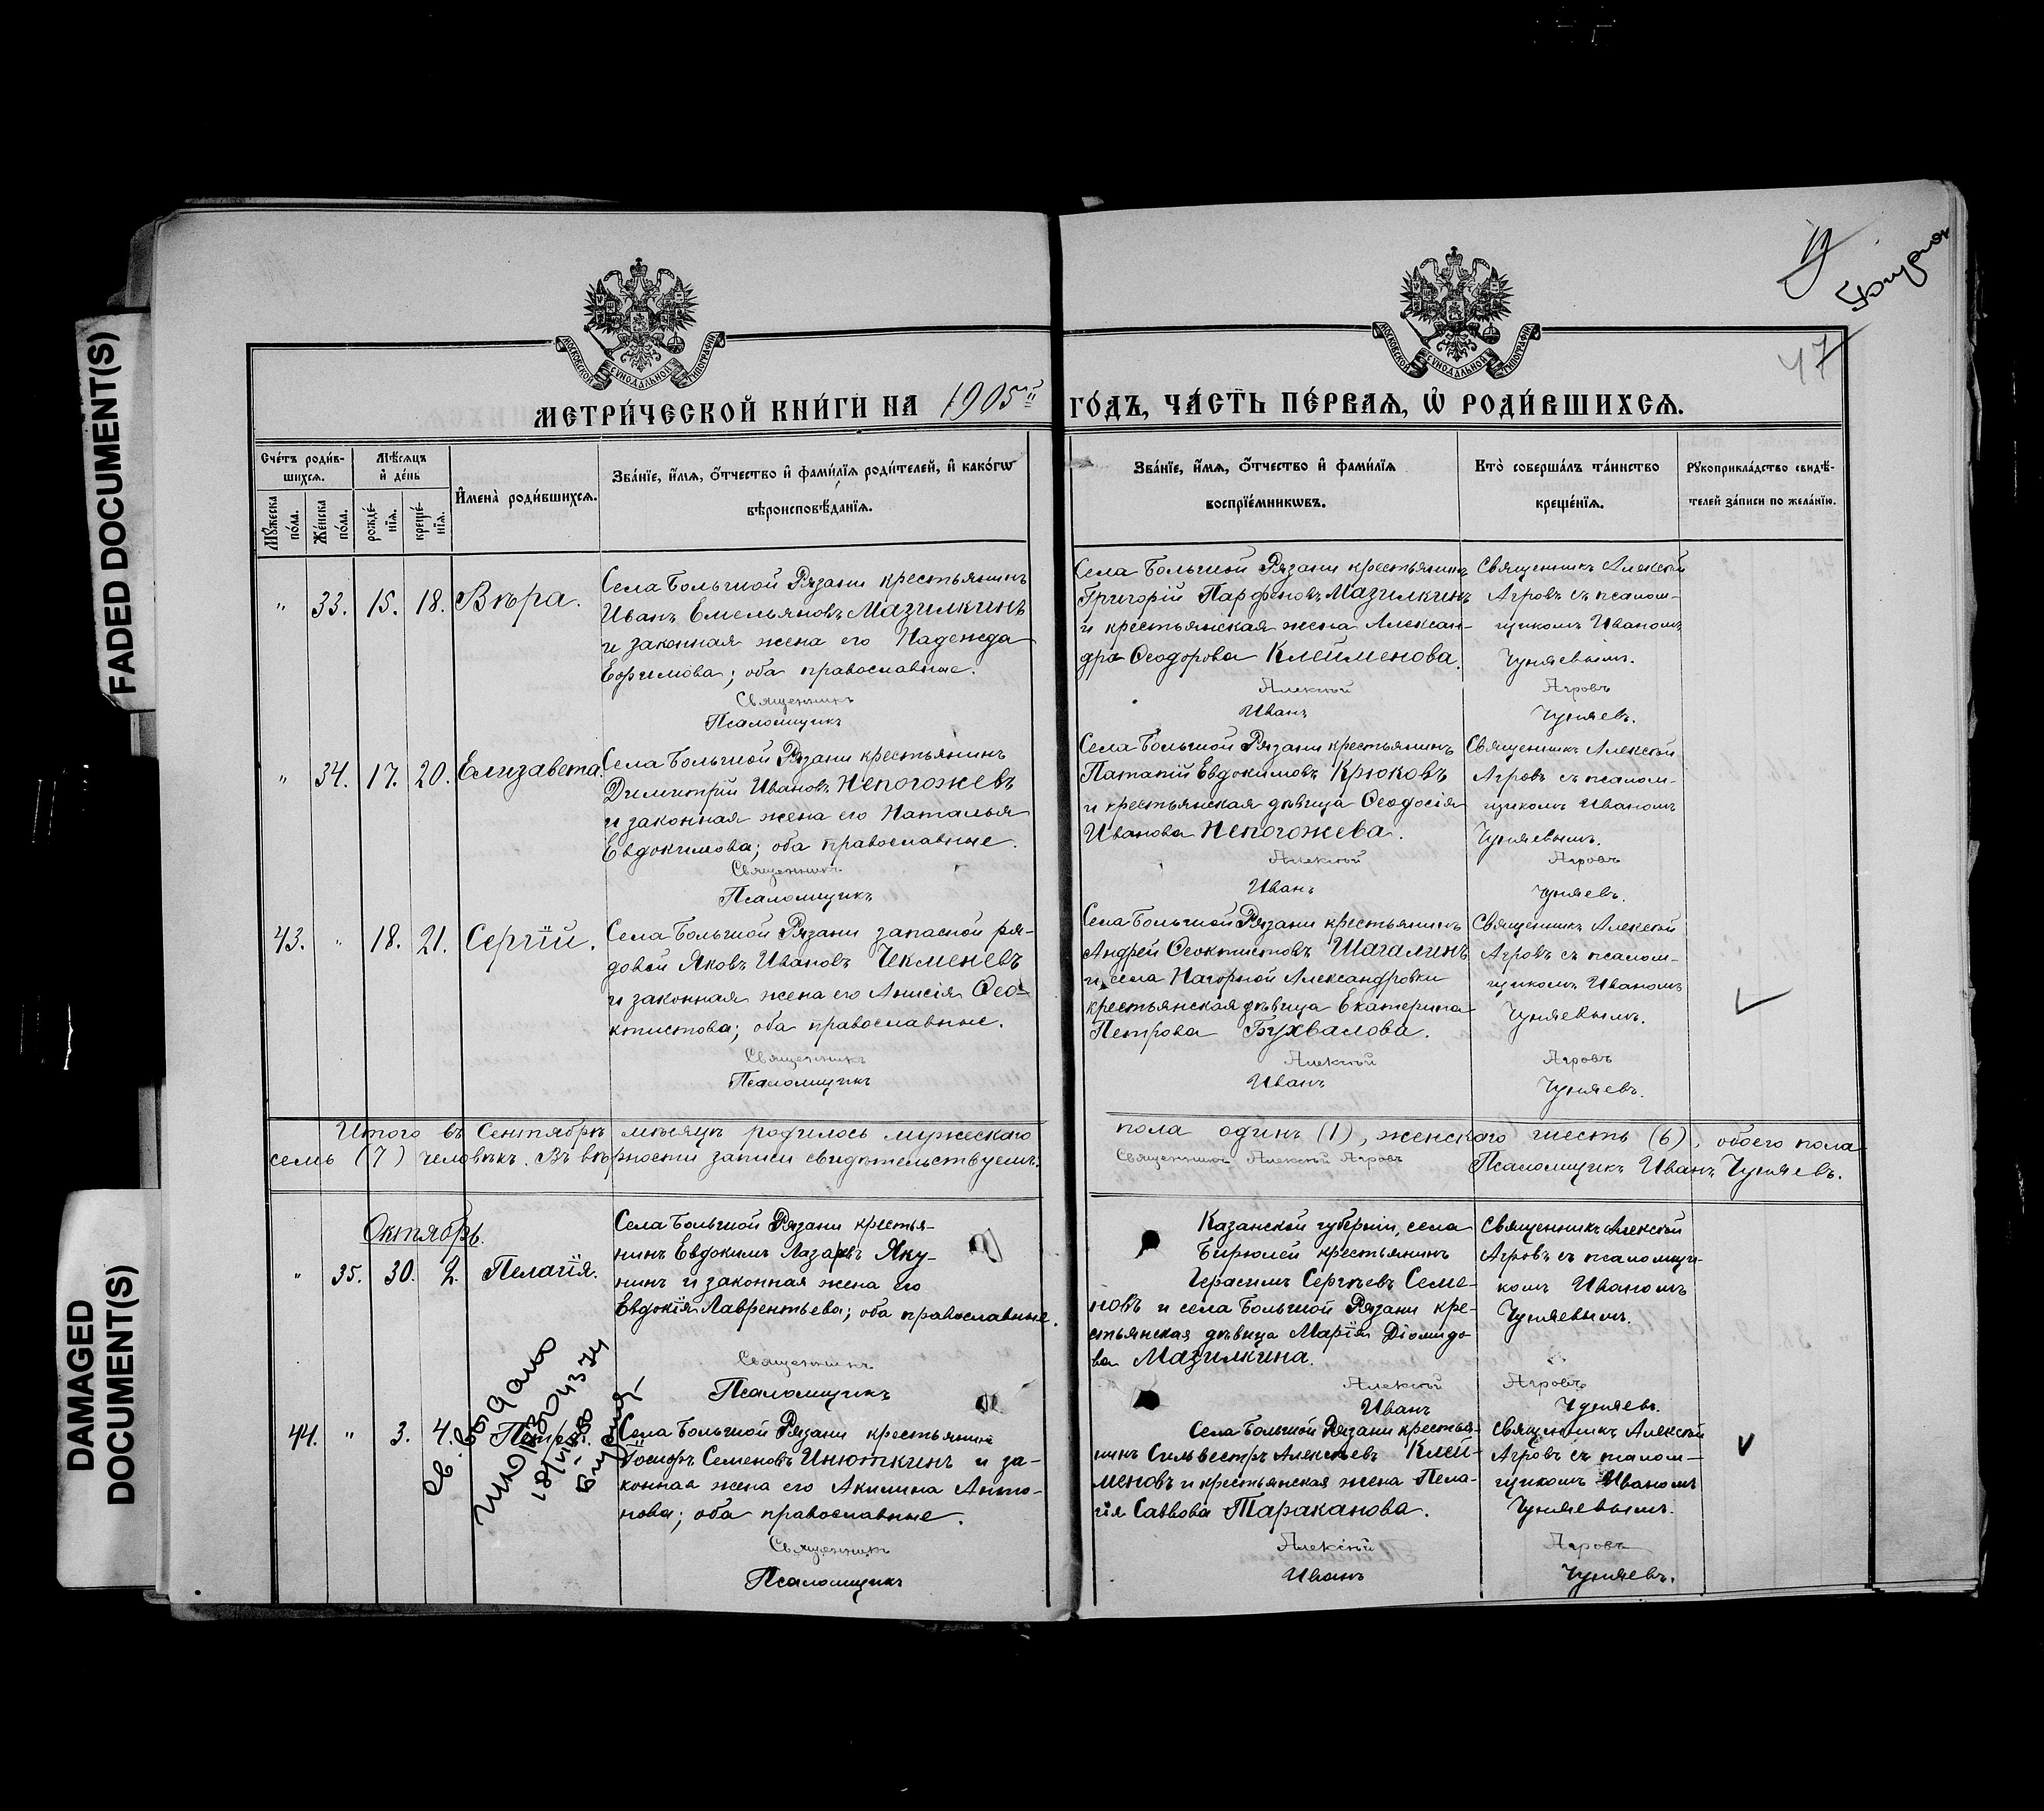 FADED DOCUMENT(S)
DAMAGED
DOCUMENT(S)
МОСКОВСКОЙ СУНОДАЛЬНОЙ ТИПОГРАФІИ
МОСКОВСКОЙ СУНОДАЛЬНОЙ ТИПОГРАФІИ
47
МЕТРИ́ЧЕСКОЙ КНИ́ГИ НА 1905й ГО́ДЪ, ЧА́СТЬ ПЕ́РВАЯ, Ѡ РОДИ́ВШИХСЯ.
Сче́тъ роди́в-
шихся.
Мѣ́сяцъ
и҆ де́нь
Мꙋ́жеска по́ла.
Же́нска по́ла.
рожде́-
нїя.
креще́-
нїя.
И҆мена̀ роди́вшихся.
Зва́нїе, и҆́мя, ѻ҆́тчество и҆ фами́лїя роди́телей, и҆ како́гѡ
вѣроисповѣ́данїя.
Зва́нїе, и҆́мя, ѻ҆́тчество и҆ фами́лїя
воспрїе́мникѡвъ.
Кто̀ соверша́лъ та́инство
креще́нїя.
Рꙋкоприкла́дство свидѣ́-
телей за́писи по жела́нїю.
" 33. 15. 18. Вѣра.
Села Большой Рязани крестьянинъ
Иванъ Емельяновъ Мазилкинъ
и законная жена его Надежда
Ефимова; оба православные.
Священникъ
Псаломщикъ
Села Большой Рязани крестьянинъ
Григорій Парфеновъ Мазилкинъ
и крестьянская жена Алексан-
дра Ѳеодорова Клейменова.
Алексѣй
Иванъ
Священникъ Алексѣй
Агровъ съ псалом-
щикомъ Иваномъ
Чуняевымъ.
Агровъ
Чуняевъ.
" 34. 17. 20. Елизавета.
Села Большой Рязани крестьянинъ
Димитрій Ивановъ Непогожевъ
и законная жена его Наталья
Евдокимова; оба православные.
Священникъ
Псаломщикъ
Села Большой Рязани крестьянинъ
Патапій Евдокимовъ Крюковъ
и крестьянская дѣвица Ѳеодосія
Иванова Непогожева.
Алексѣй
Иванъ
Священникъ Алексѣй
Агровъ съ псалом-
щикомъ Иваномъ
Чуняевымъ.
Агровъ
Чуняевъ.
43. " 18. 21. Сергій.
Села Большой Рязани запасной ря-
довой Яковъ Ивановъ Чекменевъ
и законная жена его Анисія Ѳео-
ктистова; оба православные.
Священникъ
Псаломщикъ
Села Большой Рязани крестьянинъ
Андрей Ѳеоктистовъ Шагалинъ
и села Нагорной Александровки
крестьянская дѣвица Екатерина
Петрова Бухвалова.
Алексѣй
Иванъ
Священникъ Алексѣй
Агровъ съ псалом-
щикомъ Иваномъ
Чуняевымъ.
Агровъ
Чуняевъ.
Итого въ Сентябрѣ мѣсяцѣ родилось мужескаго пола одинъ (1), женскаго шесть (6), обоего пола
семь (7) человѣкъ. Въ вѣрности записи свидѣтельствуемъ: Священникъ Алексѣй Агровъ Псаломщикъ Иванъ Чуняевъ.
Октябрь.
" 35. 30. 2. Пелагія.
Села Большой Рязани крестья-
нинъ Евдокимъ Лазаревъ Яку-
нинъ и законная жена его
Евдокія Лаврентьева; оба православные.
Священникъ
Псаломщикъ
Казанской губерніи, села
Бирюлей крестьянинъ
Герасимъ Сергѣевъ Семе-
новъ и села Большой Рязани кре-
стьянская дѣвица Марія Діомидо-
ва Мазилкина.
Алексѣй
Иванъ
Священникъ Алексѣй
Агровъ съ псаломщи-
комъ Иваномъ
Чуняевымъ.
Агровъ
Чуняевъ.
44. " 3. 4. Петръ.
Села Большой Рязани крестьянинъ
Іосифъ Семеновъ Инюткинъ и за-
конная жена его Акилина Анто-
нова; оба православные.
Священникъ
Псаломщикъ
Села Большой Рязани крестья-
нинъ Сильвестръ Алексѣевъ Клей-
меновъ и крестьянская жена Пела-
гія Саввова Тараканова.
Алексѣй
Иванъ
Священникъ Алексѣй
Агровъ съ псалом-
щикомъ Иваномъ
Чуняевымъ.
Агровъ
Чуняевъ.
св. выдано